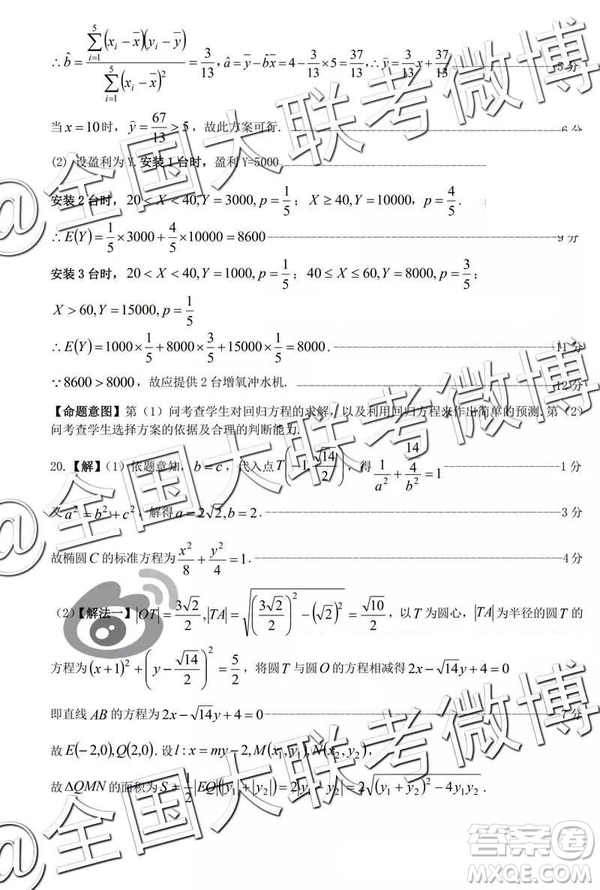 ∴ b̂ = ∑_{i=1}^{5}(x_i − x̄)(y_i − ȳ) / ∑_{i=1}^{5}(x_i − x̄)² = 3/13, â = ȳ − b̂x̄ = 4 − 3/13 × 5 = 37/13, ∴ ȳ = 3/13 x + 37/13. 5 分
当 x = 10 时, ȳ = 67/13 > 5, 故此方案可行. 6 分
(2) 设盈利为 Y, 安装 1 台时, 盈利 Y=5000.
安装 2 台时, 20 < X < 40, Y = 3000, p = 1/5; X ≥ 40, Y = 10000, p = 4/5.
∴ E(Y) = 1/5 × 3000 + 4/5 × 10000 = 8600 9 分
安装 3 台时, 20 < X < 40, Y = 1000, p = 1/5; 40 ≤ X ≤ 60, Y = 8000, p = 3/5;
X > 60, Y = 15000, p = 1/5
∴ E(Y) = 1000 × 1/5 + 8000 × 3/5 + 15000 × 1/5 = 8000. 11 分
∵ 8600 > 8000, 故应提供 2 台增氧冲水机. 12 分
【命题意图】第 (1) 问考查学生对回归方程的求解, 以及利用回归方程来作出简单的预测. 第 (2)
问考查学生选择方案的依据及合理的判断能力.
20. 【解】(1) 依题意知, b = c, 代入点 T(−1, √14/2), 得 1/a² + (14/4)/b² = 1 1 分
及 a² = b² + c², 解得 a = 2√2, b = 2. 3 分
故椭圆 C 的标准方程为 x²/8 + y²/4 = 1. 4 分
(2) 【解法一】|OT| = 3√2/2, |TA| = √((3√2/2)² − (√2)²) = √10/2, 以 T 为圆心, |TA| 为半径的圆 T 的
方程为 (x + 1)² + (y − √14/2)² = 5/2, 将圆 T 与圆 O 的方程相减得 2x − √14y + 4 = 0
即直线 AB 的方程为 2x − √14y + 4 = 0 7 分
故 E(−2,0), Q(2,0). 设 l : x = my − 2, M(x₁, y₁), N(x₂, y₂),
故 ΔQMN 的面积为 S = 1/2 |EQ|(|y₁| + |y₂|) = 2|y₁ − y₂| = 2√((y₁ + y₂)² − 4y₁y₂).
@全国大联考微博
@全国大联考微博
@全国大联考微博
答案圈
MXQE.COM